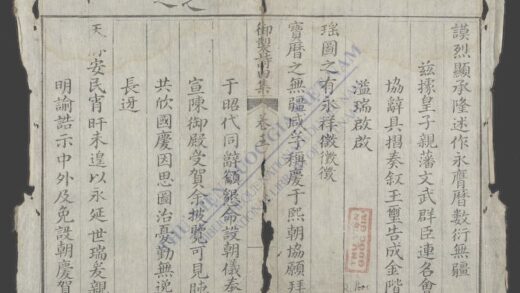 謨烈顯承隆述作永膺曆數衍無疆
茲據皇子親藩文武群臣連名會
協辭具摺奏叙王璽告成金階
溢瑞啟啟
瑤圖之有永祥徵徵徵
寶曆之無疆咸孚稱慶于熙朝協願拜
御製詩集 卷
于昭代同辭籲懇命設朝儀奏
宣陳御殿受賀余披覽可見
共欣國慶因思圖治憂勤無逸
長迓
天 安民宵旰未遑以永延世瑞爰親
明諭誥示中外及免設朝慶賀